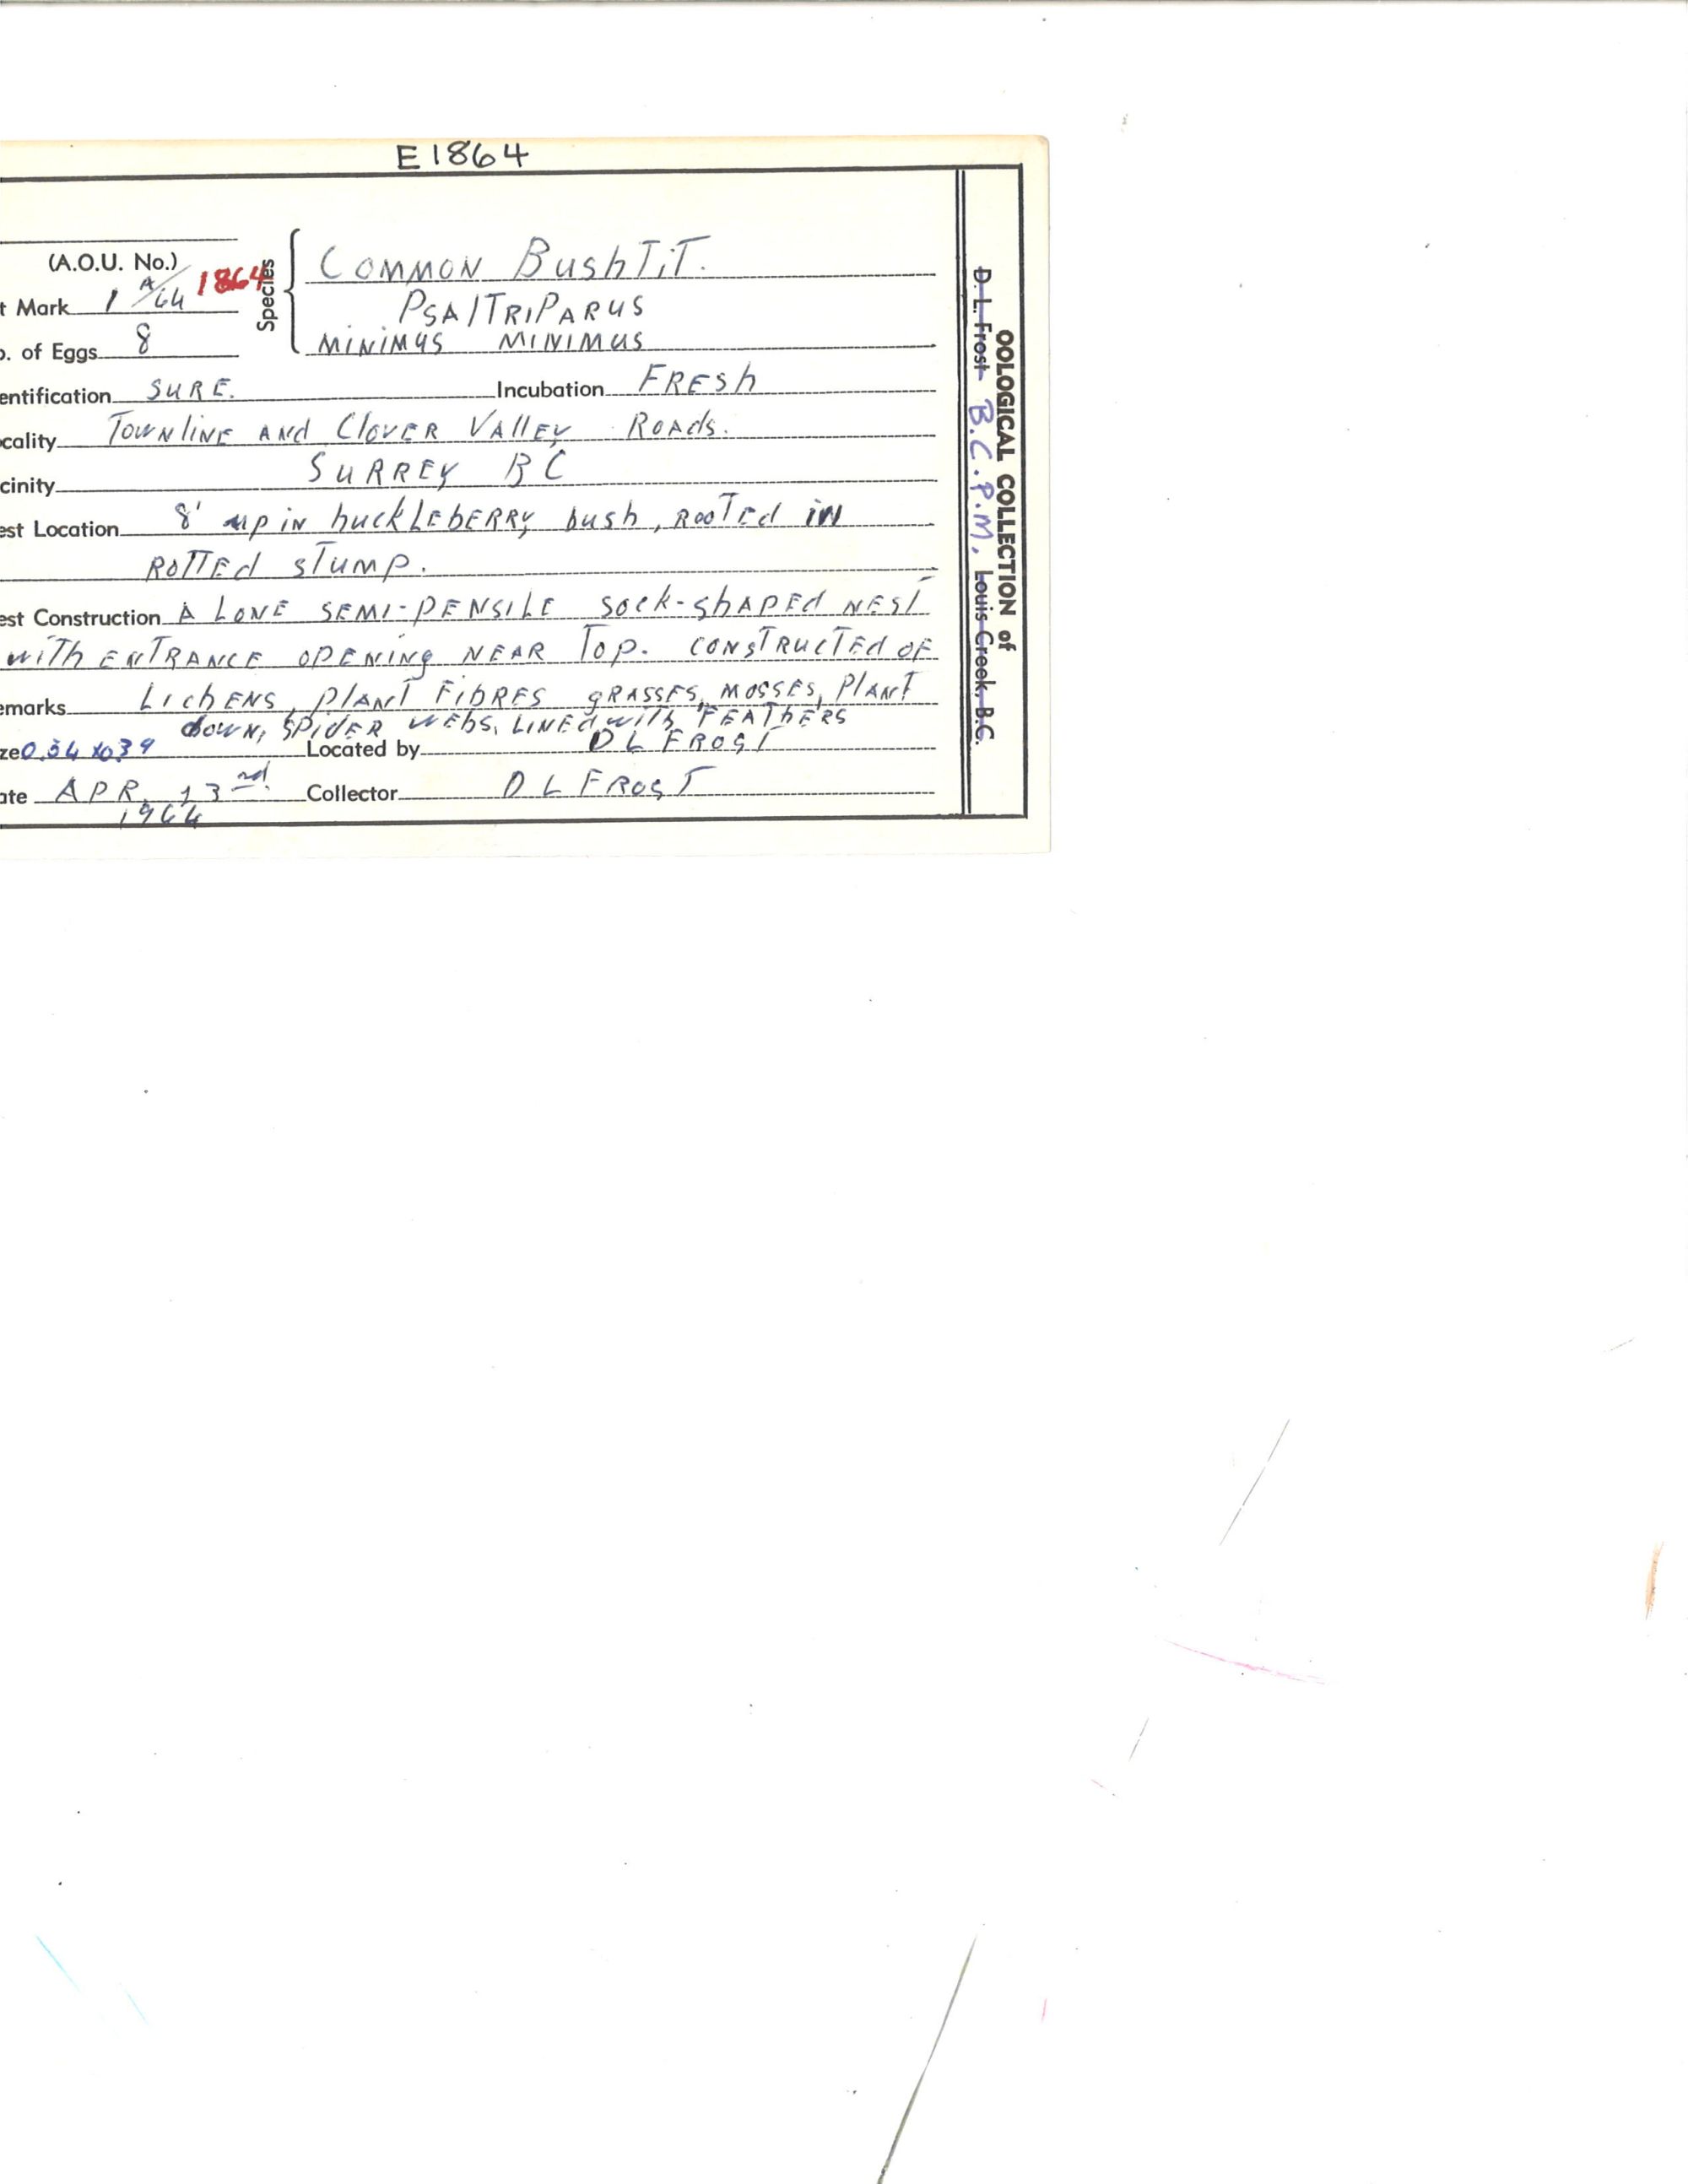 E1864
(A.O.U. No.)
t Mark 1 A/64 1864
o. of Eggs 8
Species
Common BushTiT.
PSAlTRiPARUS
MiNiMUS MINIMUS
entification SURE. Incubation FRESh
cality TOWNliNE ANd ClOVER VAllEy ROAds.
cinity SURREY BC
est Location 8' up iN huckLEbERRy bush, ROOTEd iN
ROTTEd STUMP.
est Construction A LONE SEMI-PENSILE SOCK-ShAPEd NEST
wiTh ENTRANCE OPENiNg NEAR TOP. CONSTRUCTEd OF
emarks LichENS, PlANT FibRES gRASSES, MOSSES, PlANT
dowN, SPidER WEbS, LINEd wiTh FEAThERS
ze 0.54 x039 Located by D L FROST
ate APR. 13nd. Collector D L FROST
1964
OOLOGICAL COLLECTION of
D. L. Frost B.C.P.M. Louis Creek, B.C.